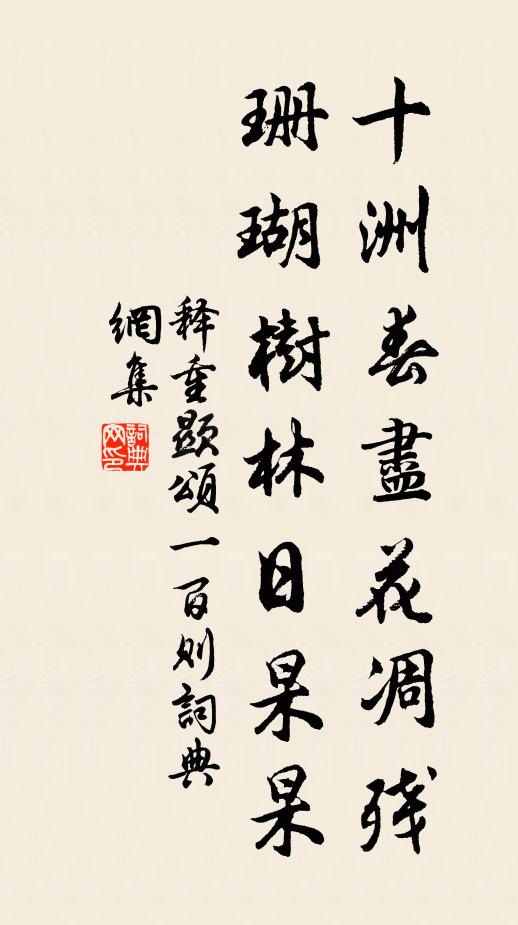 十洲春盡花凋残
珊瑚樹林日杲杲
释重顯頌一百则詞典
網集
詞典網印